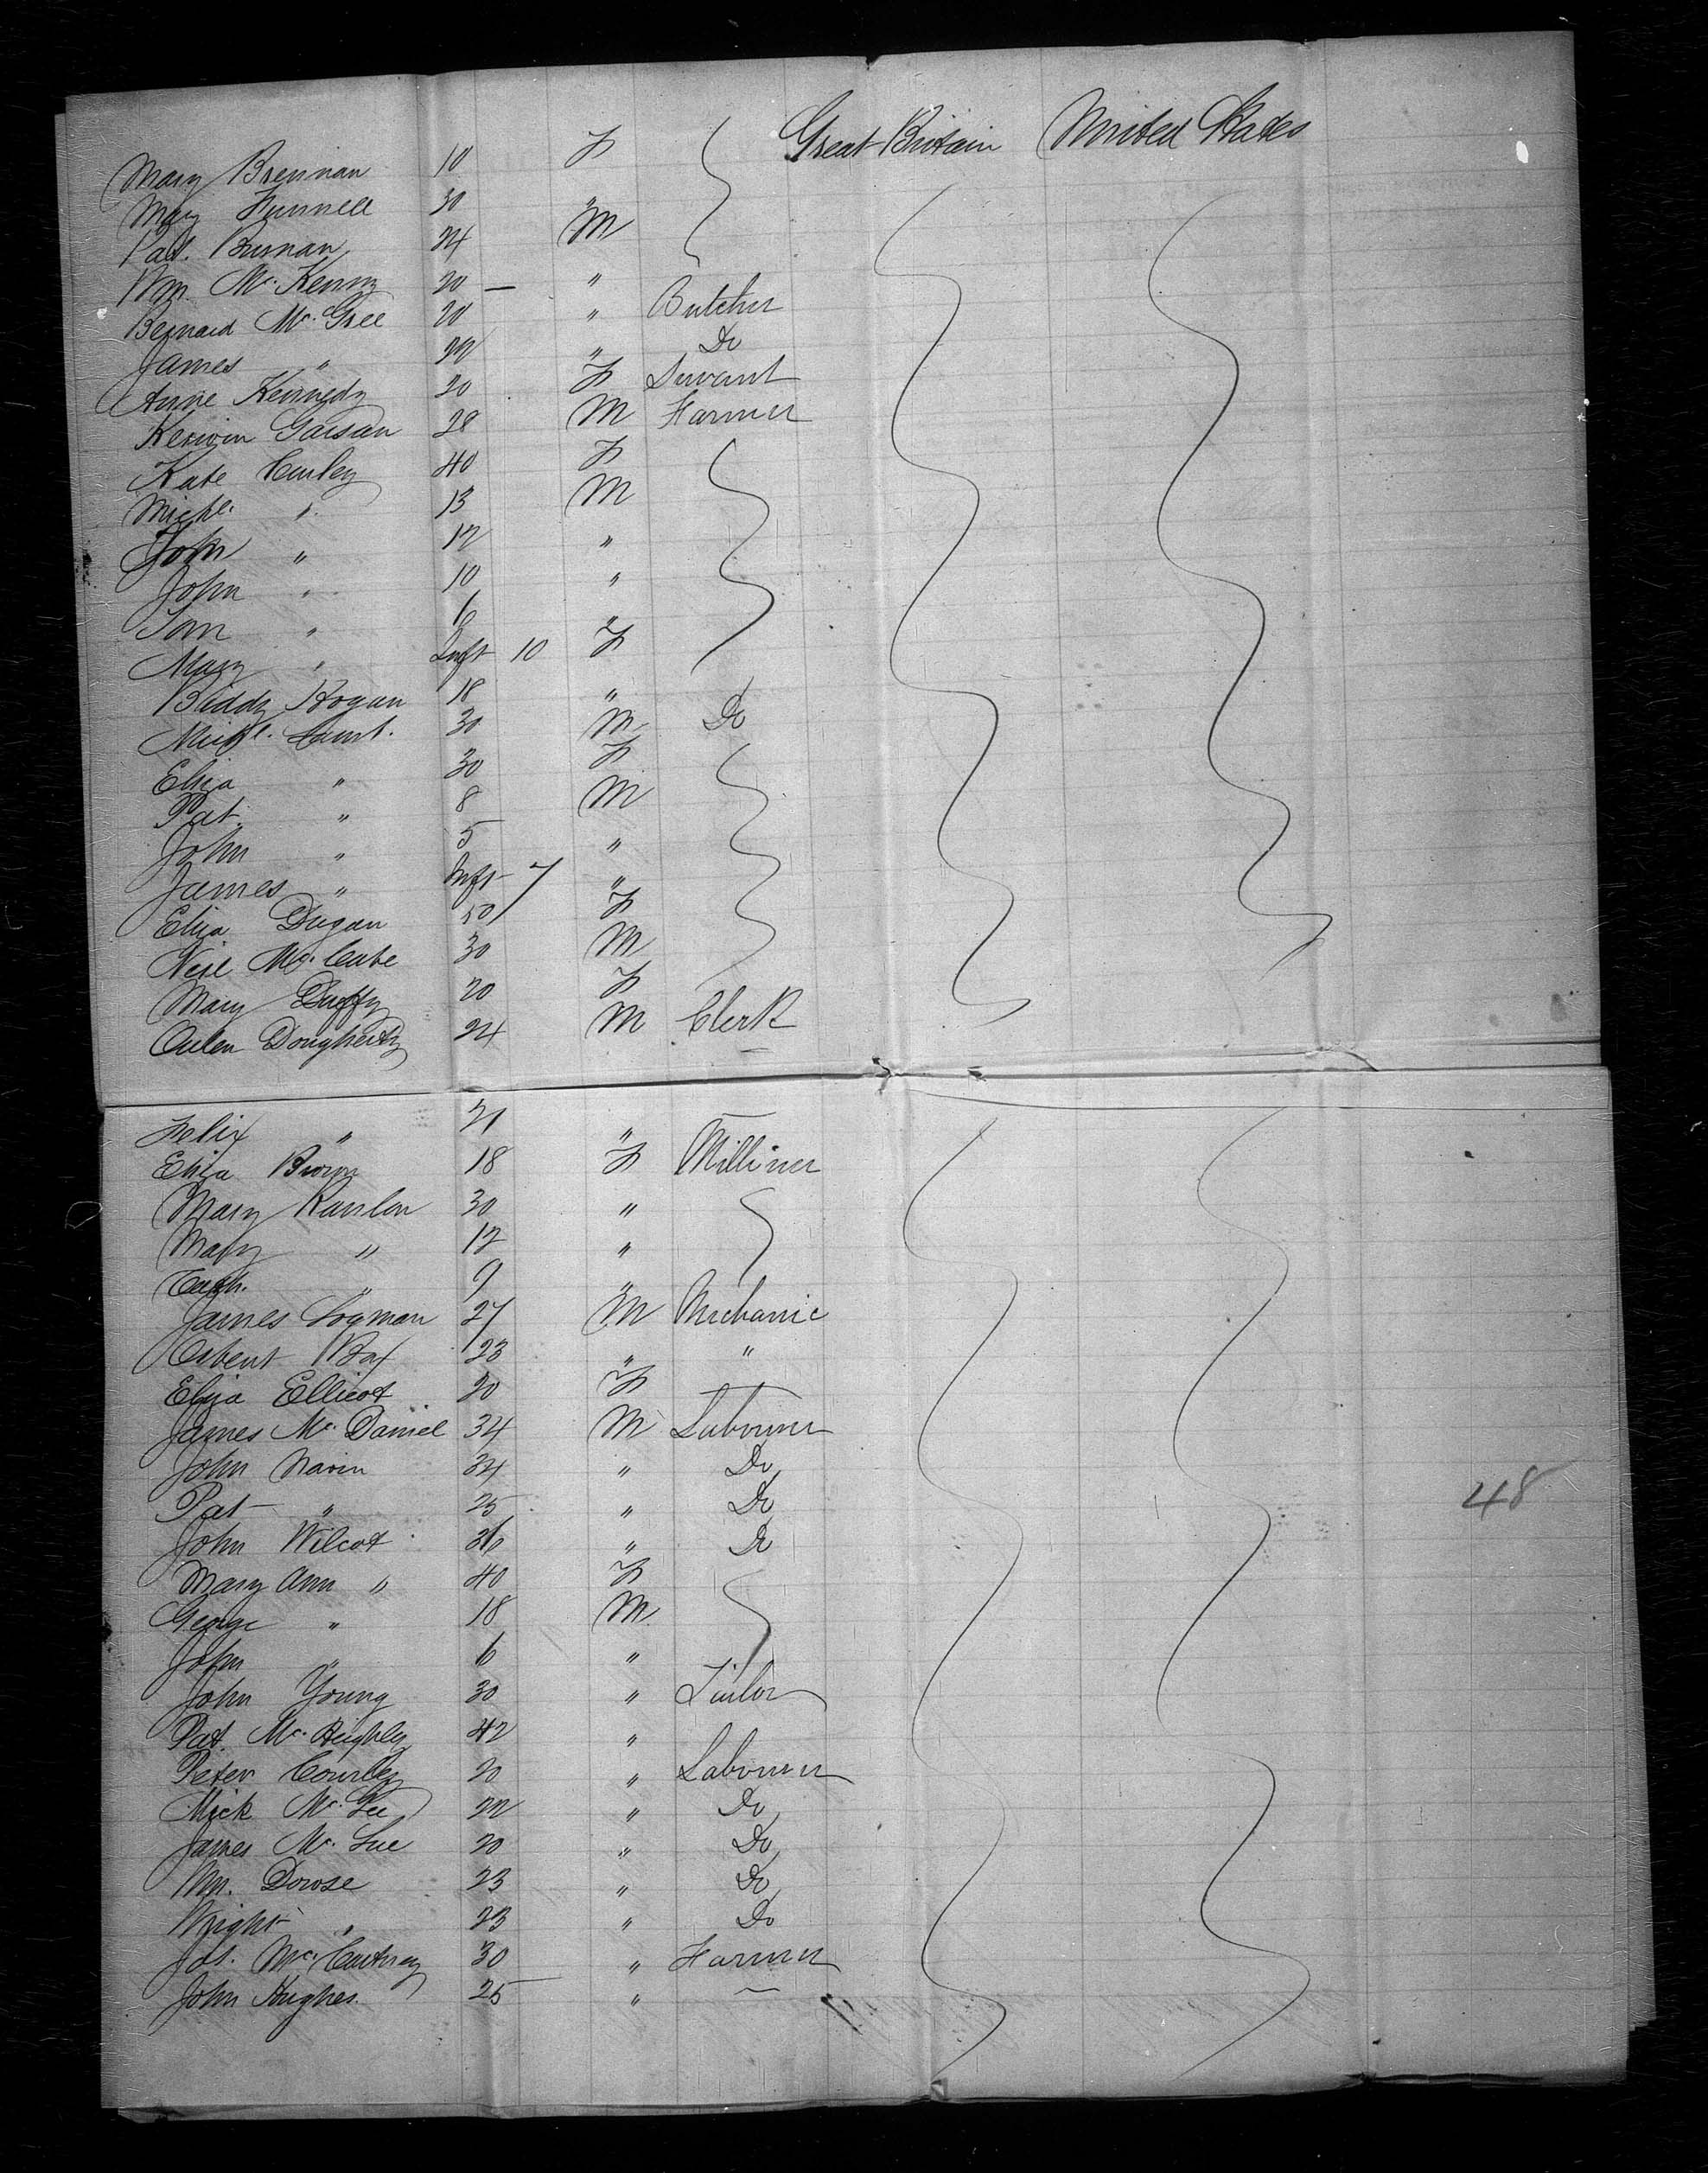 Great Britain United States
Mary Brennan 10 F
Mary Funnell 30 "
Pat. Brennan 24 M
Wm. McKenny 20 — "
Bernard McGee 20 " Butcher
James " 22 " Do
Anne Kennedy 20 F Servant
28 M Farmer
Kate Curley 40 F
Michl. " 13 M
John " 12 "
John " 10 "
Tom " 6 "
Mary " Inft 10 F
Biddy Hogan 18 "
Michl. 30 M Do
Eliza " 30 F
Pat " 8 M
John " 5 "
James " Inft 7 "
Eliza Dugan 50 F
Neil McCabe 30 M
Mary Duffy 20 F
Dougherty 24 M Clerk
Felix " 21 " —
Eliza Brown 18 F Milliner
Mary Hanlon 30 "
Mary " 12 "
Cath. " 9 "
James Logman 27 M Mechanic
23 " "
Eliza Ellicot 20 F —
James McDaniel 34 M Labourer
John Navin 34 " Do
Pat " 25 " Do
John Wilcot 36 " Do
Mary Ann " 40 F
George " 18 M
John " 6 "
John Young 30 " Tailor
Pat. 42 "
Peter Courley 20 " Labourer
Mick McGee 22 " Do
James 20 " Do
Wm. Dowse 23 " Do
Wright " 23 " Do
Jas. McCartney 30 " Farmer
John Hughes 25 " —
48